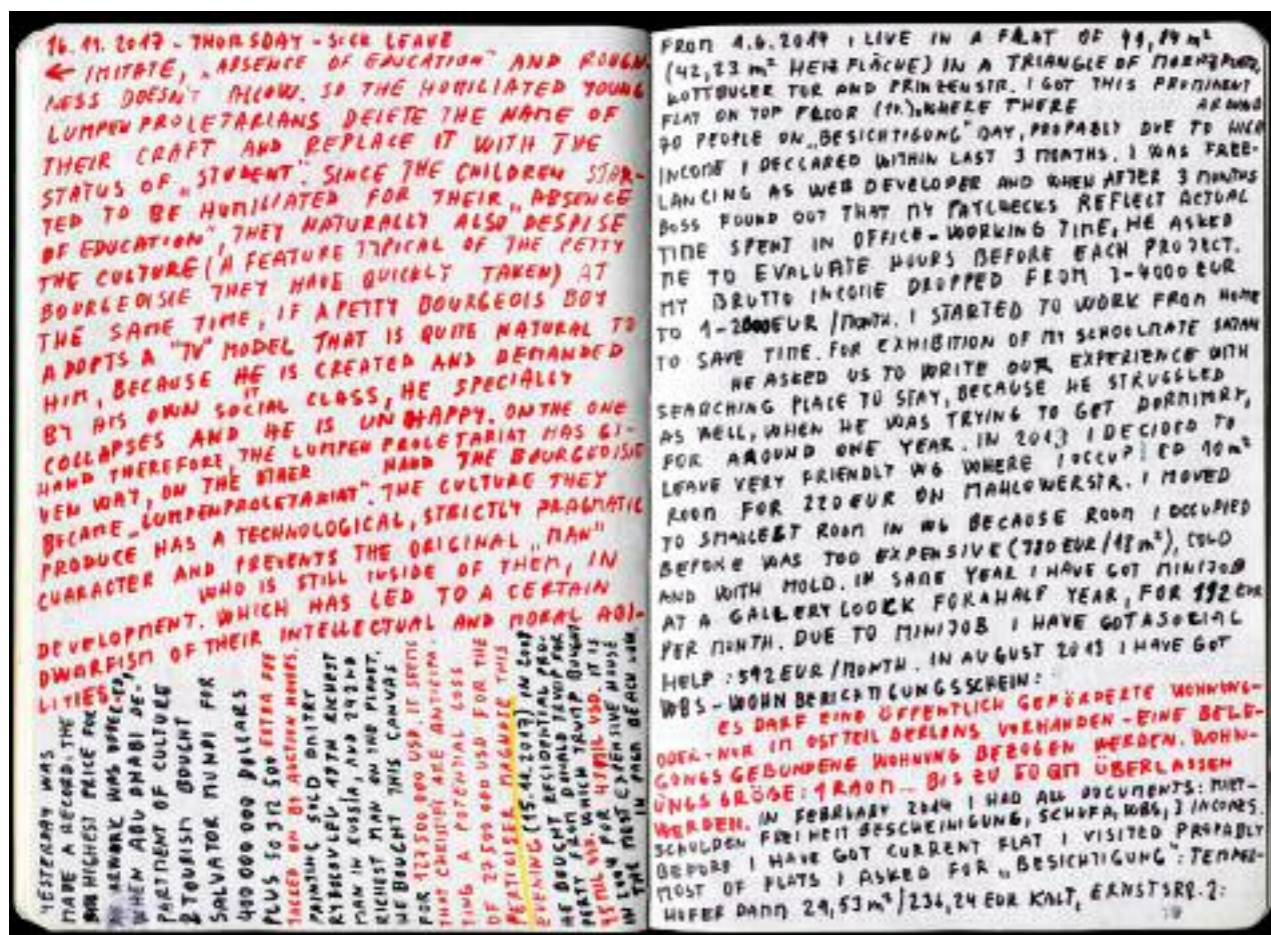 16.11.2017 - THURSDAY - SICK LEAVE
← IMITATE, „ABSENCE OF EDUCATION" AND ROUGH-
NESS DOESN'T ALLOW. SO THE HUMILIATED YOUNG
LUMPENPROLETARIANS DELETE THE NAME OF
THEIR CRAFT AND REPLACE IT WITH THE
STATUS OF „STUDENT". SINCE THE CHILDREN STAR-
TED TO BE HUMILIATED FOR THEIR „ABSENCE
OF EDUCATION", THEY NATURALLY ALSO DESPISE
THE CULTURE (A FEATURE TYPICAL OF THE PETTY
BOURGEOISIE THEY HAVE QUICKLY TAKEN) AT
THE SAME TIME, IF A PETTY BOURGEOIS BOY
ADOPTS A "TV" MODEL THAT IS QUITE NATURAL TO
HIM, BECAUSE IT IS CREATED AND DEMANDED
BY HIS OWN SOCIAL CLASS, HE SPECIALLY
COLLAPSES AND HE IS UNHAPPY. ON THE ONE
HAND THEREFORE, THE LUMPENPROLETARIAT HAS GI-
VEN WAY, ON THE OTHER HAND THE BOURGEOISIE
BECAME „LUMPENPROLETARIAT". THE CULTURE THEY
PRODUCE HAS A TECHNOLOGICAL, STRICTLY PRAGMATIC
CHARACTER AND PREVENTS THE ORIGINAL „MAN"
WHO IS STILL INSIDE OF THEM, IN
DEVELOPMENT. WHICH HAS LED TO A CERTAIN
DWARFISM OF THEIR INTELLECTUAL AND MORAL ABI-
LITIES.
YESTERDAY WAS
MADE A RECORD: THE
HIGHEST PRICE FOR
ARTWORK WAS OFFERED,
WHEN ABU DHABI DE-
PARTMENT OF CULTURE
& TOURISM BOUGHT
SALVATOR MUNDI FOR
400 000 000 DOLLARS
PLUS 50 312 500 EXTRA FEE
TACKED ON BY AUCTION HOUSES.
PAINTING SOLD DMITRY
RYBOLOVLEV, 15TH RICHEST
MAN IN RUSSIA, AND 242ND
RICHEST MAN ON THE PLANET.
HE BOUGHT THIS CANVAS
FOR 127 500 000 USD. IT SEEMS
THAT CHRISTIE ARE ANTICIPA-
TING A POTENTIAL LOSS
OF 27 500 000 USD FOR THE
PERTICISER MAGNATE THIS
EVENING (15.11.2017) IN 2008
HE BOUGHT RESIDENTIAL PRO-
PERTY FROM DONALD TRUMP FOR
95 MIL USD, WHICH TRUMP BOUGHT
IN 2004 FOR 41 MIL USD. IT IS
THE MOST EXPENSIVE HOUSE
IN PALM BEACH
FROM 1.6.2014 I LIVE IN A FLAT OF
(42,23 m² HEIZFLÄCHE) IN A TRIANGLE OF MORITZPLATZ,
KOTTBUSER TOR AND PRINZENSTR. I GOT THIS PROMINENT
FLAT ON TOP FLOOR WHERE THERE AROUND
PEOPLE ON „BESICHTIGUNG" DAY, PROPABLY DUE TO HIGH
INCOME I DECLARED WITHIN LAST 3 MONTHS. I WAS FREE-
LANCING AS WEB DEVELOPER AND WHEN AFTER 3 MONTHS
BOSS FOUND OUT THAT MY PAYCHECKS REFLECT ACTUAL
TIME SPENT IN OFFICE - WORKING TIME, HE ASKED
ME TO EVALUATE HOURS BEFORE EACH PROJECT.
MY BRUTTO INCOME DROPPED FROM 3-4000 EUR
TO 1-2000EUR /MONTH. I STARTED TO WORK FROM HOME
TO SAVE TIME. FOR EXHIBITION OF MY SCHOOLMATE
HE ASKED US TO WRITE OUR EXPERIENCE WITH
SEARCHING PLACE TO STAY, BECAUSE HE STRUGGLED
AS WELL, WHEN HE WAS TRYING TO GET DORMITORY,
FOR AROUND ONE YEAR. IN 2013 I DECIDED TO
LEAVE VERY FRIENDLY WG WHERE I OCCUPIED 10m²
ROOM FOR 220 EUR ON MAHLOWERSTR. I MOVED
TO SMALLEST ROOM IN WG BECAUSE ROOM I OCCUPIED
BEFORE WAS TOO EXPENSIVE (380 EUR/18m²), COLD
AND WITH MOLD. IN SAME YEAR I HAVE GOT MINIJOB
AT A GALLERY LOOCK FOR A HALF YEAR, FOR 192 EUR
PER MONTH. DUE TO MINIJOB I HAVE GOT A SOCIAL
HELP: 592 EUR/MONTH. IN AUGUST 2013 I HAVE GOT
WBS - WOHNBERICHTIGUNGSSCHEIN:
ES DARF EINE ÖFFENTLICH GEFÖRDERTE WOHNUNG-
ODER - NUR IM OSTTEIL BERLINS VORHANDEN - EINE BELE-
GUNGSGEBUNDENE WOHNUNG BEZOGEN WERDEN. WOHN-
UNGSGRÖßE: 1 RAUM... BIS ZU 50 QM ÜBERLASSEN
WERDEN. IN FEBRUARY 2014 I HAD ALL DOCUMENTS: MIET-
SCHULDENFREIHEITBESCHEINIGUNG, SCHUFA, WBS, 3 INCOMES.
BEFORE I HAVE GOT CURRENT FLAT I VISITED PROPABLY
MOST OF FLATS I ASKED FOR „BESICHTIGUNG": TEMPEL-
HOFER DAMM 29,53m²/236,24 EUR KALT, ERNSTSTR. 2: